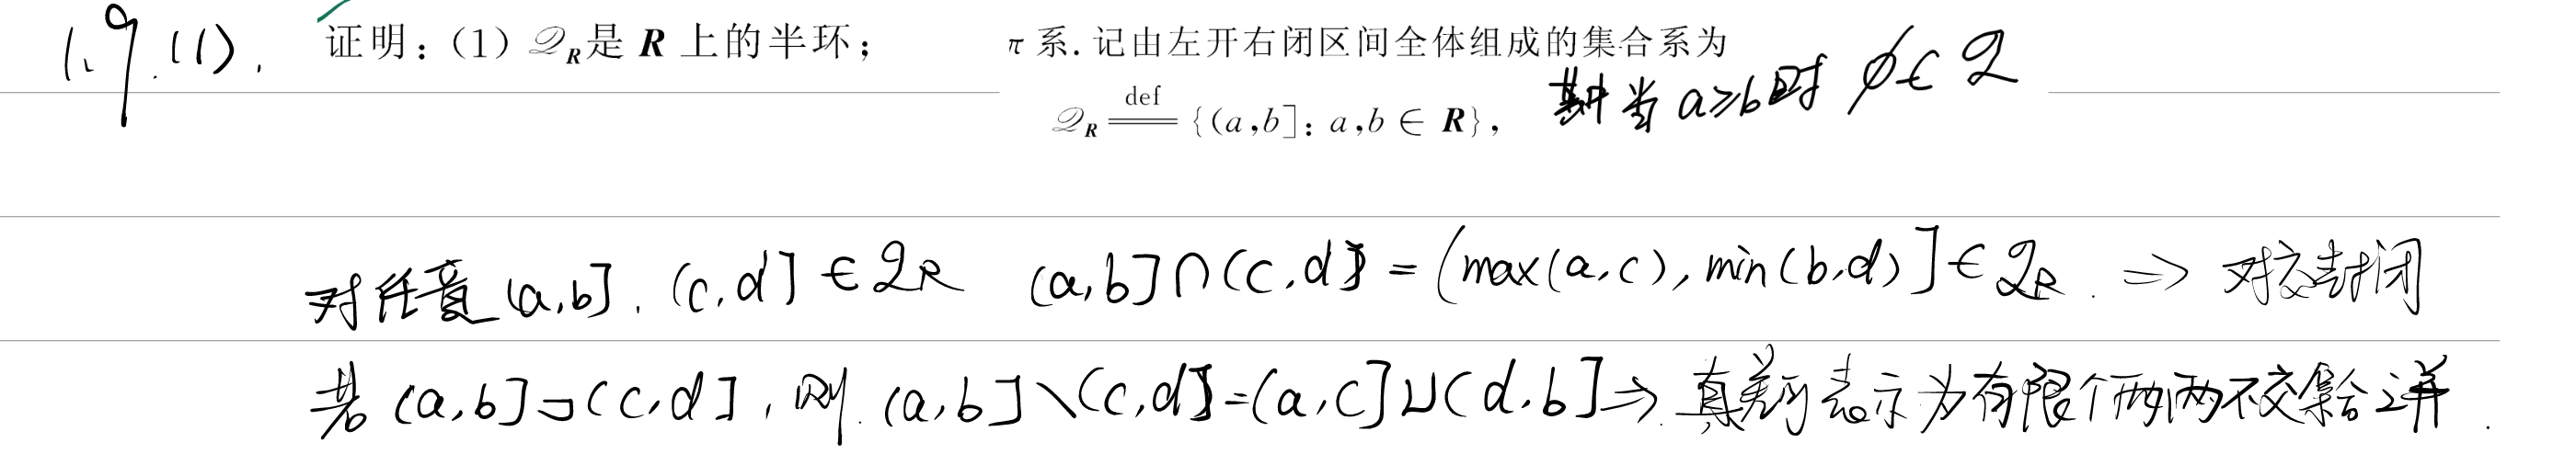 1.9.(1). 证明：(1) 𝒬_R是 R 上的半环；
π 系. 记由左开右闭区间全体组成的集合系为
𝒬_R ≝ {(a,b]: a,b ∈ R}, 其中当 a≥b时 ∅∈𝒬
对任意 (a,b], (c,d] ∈ 𝒬_R (a,b]∩(c,d] = (max(a,c), min(b,d)] ∈ 𝒬_R. ⇒ 对交封闭
若 (a,b]⊃(c,d], 则 (a,b]\(c,d]=(a,c]∪(d,b] ⇒ 真差可表示为有限个两两不交集合之并.